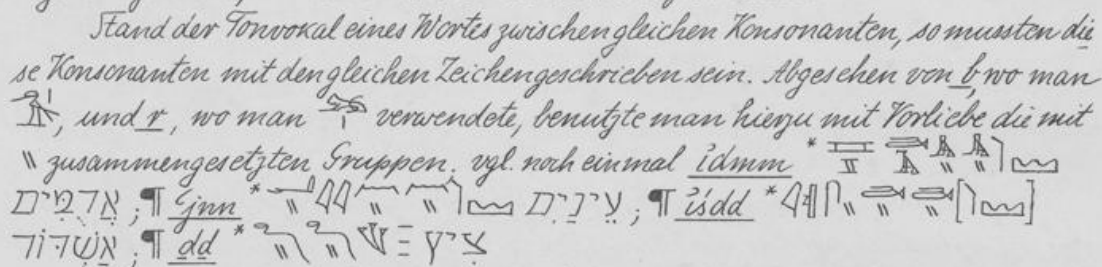 Stand der Tonvokal eines Wortes zwischen gleichen Konsonanten, so mussten die
se Konsonanten mit den gleichen Zeichen geschrieben sein. Abgesehen von b, wo man
, und r, wo man verwendete, benutzte man hierzu mit Vorliebe die mit
\\ zusammengesetzten Gruppen. vgl. noch einmal ỉdmm *
אֲדֻמִּים ; ¶ ꜥjnn * עֵינַיִם ; ¶ ỉśdd * [ ]
אַשְׁדּוֹד ; ¶ ḏḏ * צִיץ